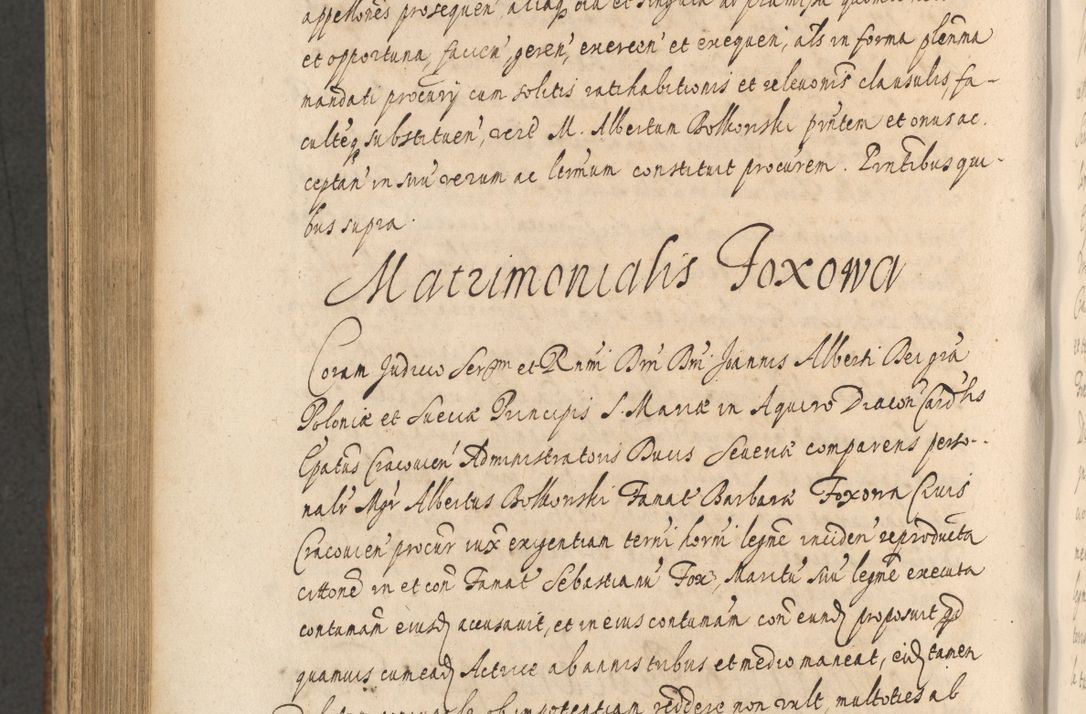 appellones prosequen' aliaq₃ oia et singula ad
et opportuna, facien', geren', exercen' et exequen', als in forma plenma
mandati procurij cum solitis ratihabitionis et relevonis clausulis, fa-
culteq₃ substituen', vero M. Albertum Bolkonski pñtem et onus ac.
ceptan' in suu' verum ac ltimum constituit procurem. Pntibus qui-
bus supra.
Matrimonialis Foxowa
Coram Judicio Sermi et Rnmi Dni Dni Joannis Alberti Dei gra'
Poloniæ et Sueciæ Principis S. Mariæ in Aquiro Diacon' Cardlis
Epatus Cracovien' Administratoris Ducis Severiæ comparens perso-
nalr Mgr Albertus Bolkonski Famat' Barbaræ Foxowa Civis
Cracovien' procur iux exigentiam terni horni legme inciden' reproducta
citone in et con Famat' Sebastianu' Fox, Maritu' suu' legme executa
contumam eiusd accusavit, et in eius contumam con eund proposuit qd
quamvis cum ead Actrice ab annis tribus et medio maneat, eid tamen
ob impotentiam reddere non vult, multoties ab